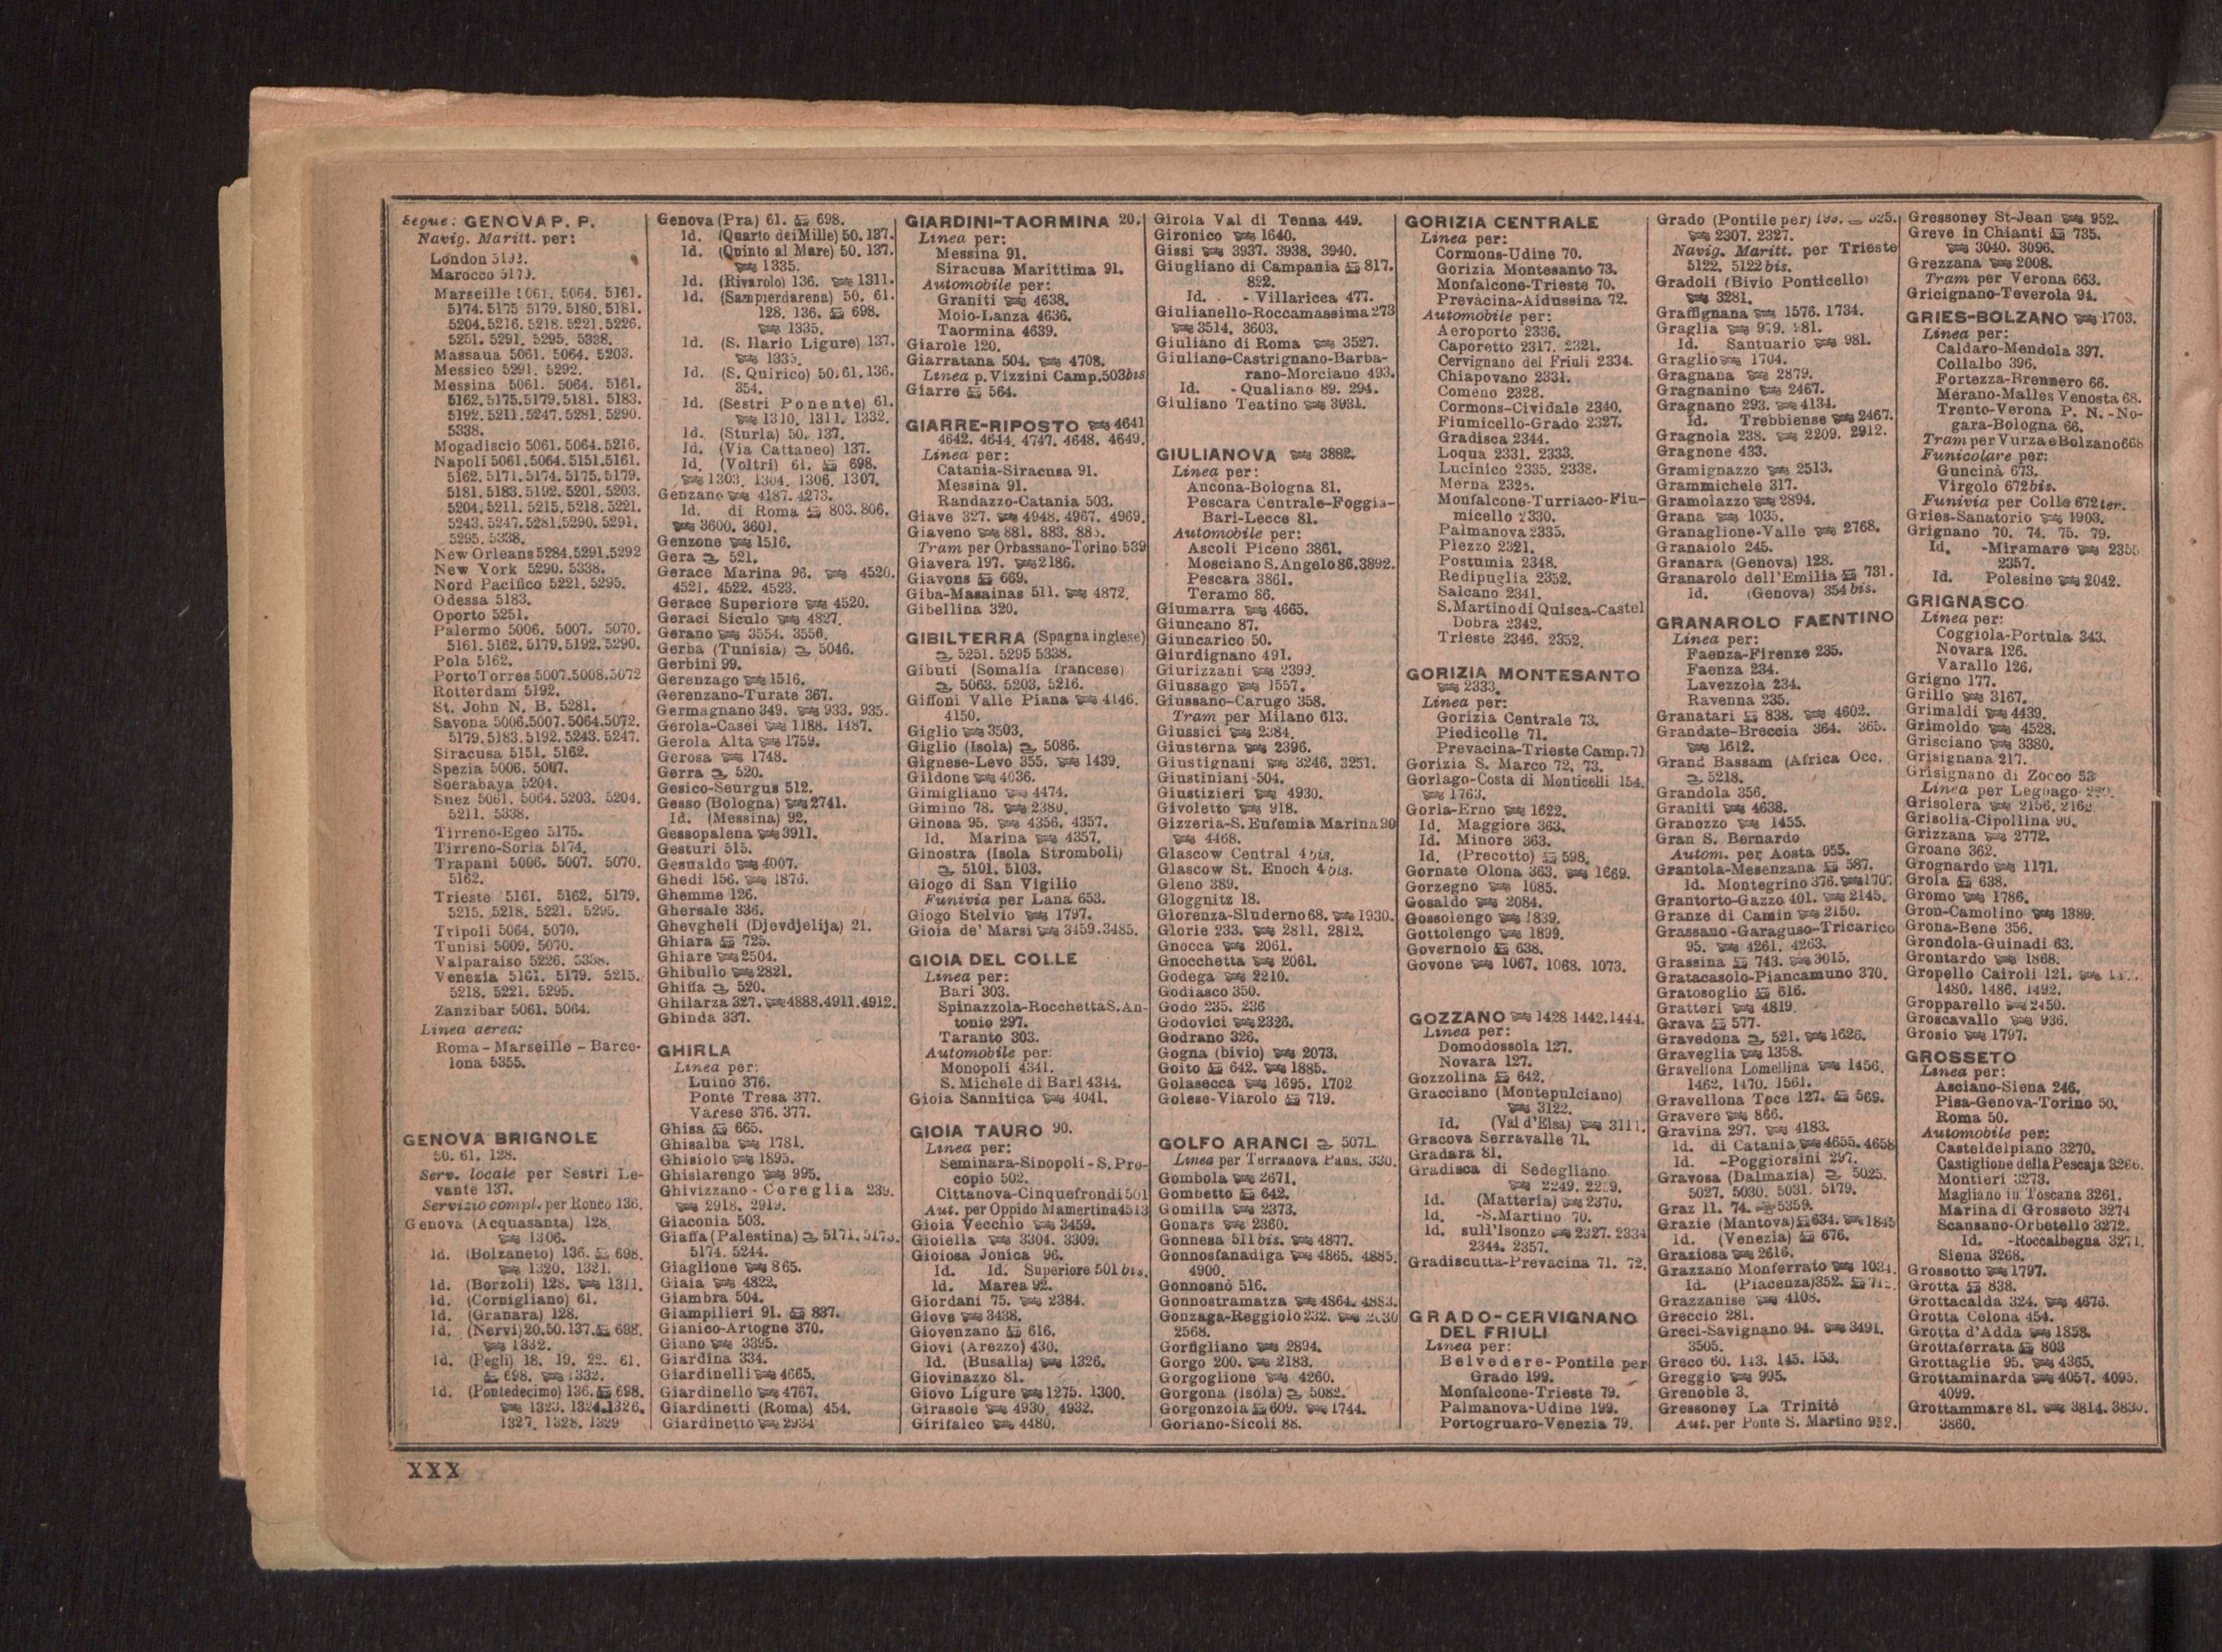 Segue: GENOVA P. P.
Navig. Maritt. per:
London 5192.
Marocco 5179.
Marseille 5061. 5064. 5161.
5174. 5175 5179. 5180. 5181.
5204. 5216. 5218. 5221. 5226.
5251. 5291. 5295. 5338.
Massaua 5061. 5064. 5203.
Messico 5291. 5292.
Messina 5061. 5064. 5161.
5162. 5175. 5179. 5181. 5183.
5192. 5211. 5247. 5281. 5290.
5338.
Mogadiscio 5061. 5064. 5216.
Napoli 5061. 5064. 5151. 5161.
5162. 5171. 5174. 5175. 5179.
5181. 5183. 5192. 5201. 5203.
5204. 5211. 5215. 5218. 5221.
5243. 5247. 5281. 5290. 5291.
5295. 5338.
New Orleans 5284. 5291. 5292
New York 5290. 5338.
Nord Pacifico 5221. 5295.
Odessa 5183.
Oporto 5251.
Palermo 5006. 5007. 5070.
5161. 5162. 5179. 5192. 5290.
Pola 5162.
Porto Torres 5007. 5008. 5072
Rotterdam 5192.
St. John N. B. 5281.
Savona 5006. 5007. 5064. 5072.
5179. 5183. 5192. 5243. 5247.
Siracusa 5151. 5162.
Spezia 5006. 5007.
Soerabaya 5204.
Suez 5061. 5064. 5203. 5204.
5211. 5338.
Tirreno-Egeo 5175.
Tirreno-Soria 5174.
Trapani 5006. 5007. 5070.
5162.
Trieste 5161. 5162. 5179.
5215. 5218. 5221. 5295.
Tripoli 5064. 5070.
Tunisi 5009. 5070.
Valparaiso 5226. 5338.
Venezia 5161. 5179. 5215.
5218. 5221. 5295.
Zanzibar 5061. 5064.
Linea aerea:
Roma - Marseille - Barce-
lona 5355.
GENOVA BRIGNOLE
50. 61. 128.
Serv. locale per Sestri Le-
vante 137.
Servizio compl. per Ronco 136.
Genova (Acquasanta) 128.
1306.
Id. (Bolzaneto) 136. 698.
1320. 1321.
Id. (Borzoli) 128. 1311.
Id. (Cornigliano) 61.
Id. (Granara) 128.
Id. (Nervi) 20. 50. 137. 698.
1332.
Id. (Pegli) 18. 19. 22. 61.
698. 1332.
Id. (Pontedecimo) 136. 698.
1323. 1324. 1326.
1327. 1328. 1329
Genova (Pra) 61. 698.
Id. (Quarto dei Mille) 50. 137.
Id. (Quinto al Mare) 50. 137.
1335.
Id. (Rivarolo) 136. 1311.
Id. (Sampierdarena) 50. 61.
128. 136. 698.
1335.
Id. (S. Ilario Ligure) 137.
1335.
Id. (S. Quirico) 50. 61. 136.
354.
Id. (Sestri Ponente) 61.
1310. 1311. 1332.
Id. (Sturla) 50. 137.
Id. (Via Cattaneo) 137.
Id. (Voltri) 61. 698.
1303. 1304. 1306. 1307.
Genzano 4187. 4273.
Id. di Roma 803. 806.
3600. 3601.
Genzone 1516.
Gera 521.
Gerace Marina 96. 4520.
4521. 4522. 4523.
Gerace Superiore 4520.
Geraci Siculo 4827.
Gerano 3554. 3556.
Gerba (Tunisia) 5046.
Gerbini 99.
Gerenzago 1516.
Gerenzano-Turate 367.
Germagnano 349. 933. 935.
Gerola-Casei 1188. 1487.
Gerola Alta 1759.
Gerosa 1748.
Gerra 520.
Gesico-Seurgus 512.
Gesso (Bologna) 2741.
Id. (Messina) 92.
Gessopalena 3911.
Gesturi 515.
Gesualdo 4007.
Ghedi 156. 1876.
Ghemme 126.
Ghersale 336.
Ghevgheli (Djevdjelija) 21.
Ghiara 725.
Ghiare 2504.
Ghibullo 2821.
Ghiffa 520.
Ghilarza 327. 4888. 4911. 4912.
Ghinda 337.
GHIRLA
Linea per:
Luino 376.
Ponte Tresa 377.
Varese 376. 377.
Ghisa 665.
Ghisalba 1781.
Ghisiolo 1895.
Ghislarengo 995.
Ghivizzano - Coreglia 239.
2918. 2919.
Giaconia 503.
Giaffa (Palestina) 5171. 5173.
5174. 5244.
Giaglione 865.
Giaia 4822.
Giambra 504.
Giampilieri 91. 837.
Gianico-Artogne 370.
Giano 3395.
Giardina 334.
Giardinelli 4665.
Giardinello 4767.
Giardinetti (Roma) 454.
Giardinetto 2934
GIARDINI-TAORMINA 20.
Linea per:
Messina 91.
Siracusa Marittima 91.
Automobile per:
Graniti 4638.
Moio-Lanza 4636.
Taormina 4639.
Giarole 120.
Giarratana 504. 4708.
Linea p. Vizzini Camp. 503bis
Giarre 564.
GIARRE-RIPOSTO 4641
4642. 4644. 4747. 4648. 4649.
Linea per:
Catania-Siracusa 91.
Messina 91.
Randazzo-Catania 503.
Giave 327. 4948. 4967. 4969.
Giaveno 881. 883. 885.
Tram per Orbassano-Torino 539
Giavera 197. 2186.
Giavons 669.
Giba-Masainas 511. 4872.
Gibellina 320.
GIBILTERRA (Spagna inglese)
5251. 5295 5338.
Gibuti (Somalia francese)
5063. 5203. 5216.
Giffoni Valle Piana 4146.
4150.
Giglio 3503.
Giglio (Isola) 5086.
Gignese-Levo 355. 1439.
Gildone 4036.
Gimigliano 4474.
Gimino 78. 2380.
Ginosa 95. 4356. 4357.
Id. Marina 4357.
Ginostra (Isola Stromboli)
5101. 5103.
Giogo di San Vigilio
Funivia per Lana 653.
Giogo Stelvio 1797.
Gioia de' Marsi 3459. 3485.
GIOIA DEL COLLE
Linea per:
Bari 303.
Spinazzola-Rocchetta S. An-
tonio 297.
Taranto 303.
Automobile per:
Monopoli 4341.
S. Michele di Bari 4344.
Gioia Sannitica 4041.
GIOIA TAURO 90.
Linea per:
Seminara-Sinopoli - S. Pro-
copio 502.
Cittanova-Cinquefrondi 501
Aut. per Oppido Mamertina 4513
Gioia Vecchio 3459.
Gioiella 3304. 3309.
Gioiosa Jonica 96.
Id. Id. Superiore 501 bis.
Id. Marea 92.
Giordani 75. 2384.
Giove 3438.
Giovenzano 616.
Giovi (Arezzo) 430.
Id. (Busalla) 1326.
Giovinazzo 81.
Giovo Ligure 1275. 1300.
Girasole 4930. 4932.
Girifalco 4480.
Girola Val di Tenna 449.
Gironico 1640.
Gissi 3937. 3938. 3940.
Giugliano di Campania 817.
822.
Id. - Villaricca 477.
Giulianello-Roccamassima 273
3514. 3603.
Giuliano di Roma 3527.
Giuliano-Castrignano-Barba-
rano-Morciano 493.
Id. - Qualiano 89. 294.
Giuliano Teatino 3931.
GIULIANOVA 3882.
Linea per:
Ancona-Bologna 81.
Pescara Centrale-Foggia-
Bari-Lecce 81.
Automobile per:
Ascoli Piceno 3861.
Mosciano S. Angelo 86. 3892.
Pescara 3861.
Teramo 86.
Giumarra 4665.
Giuncano 87.
Giuncarico 50.
Giurdignano 491.
Giurizzani 2399.
Giussago 1557.
Giussano-Carugo 358.
Tram per Milano 613.
Giussici 2384.
Giusterna 2396.
Giustignani 3246. 3251.
Giustiniani 504.
Giustizieri 4930.
Givoletto 918.
Gizzeria-S. Eufemia Marina 90
4468.
Glascow Central 4bis.
Glascow St. Enoch 4bis.
Gleno 389.
Gloggnitz 18.
Glorenza-Sluderno 68. 1930.
Glorie 233. 2811. 2812.
Gnocca 2061.
Gnocchetta 2061.
Godega 2210.
Godiasco 350.
Godo 235. 236
Godovici 2326.
Godrano 326.
Gogna (bivio) 2073.
Goito 642. 1885.
Golasecca 1695. 1702
Golese-Viarolo 719.
GOLFO ARANCI 5071.
Linea per Terranova Paus. 330.
Gombola 2671.
Gombetto 642.
Gomilla 2373.
Gonars 2360.
Gonnesa 511bis. 4877.
Gonnosfanadiga 4865. 4885.
4900.
Gonnosnò 516.
Gonnostramatza 4864. 4883.
Gonzaga-Reggiolo 232.
2568.
Gorfigliano 2894.
Gorgo 200. 2183.
Gorgoglione 4260.
Gorgona (isola) 5082.
Gorgonzola 609. 1744.
Goriano-Sicoli 88.
GORIZIA CENTRALE
Linea per:
Cormons-Udine 70.
Gorizia Montesanto 73.
Monfalcone-Trieste 70.
Prevàcina-Aidussina 72.
Automobile per:
Aeroporto 2336.
Caporetto 2317. 2321.
Cervignano del Friuli 2334.
Chiapovano 2331.
Comeno 2328.
Cormons-Cividale 2340.
Fiumicello-Grado 2327.
Gradisca 2344.
Loqua 2331. 2333.
Lucinico 2335. 2338.
Merna 2328.
Monfalcone-Turriaco-Fiu-
micello 2330.
Palmanova 2335.
Plezzo 2321.
Postumia 2348.
Redipuglia 2352.
Salcano 2341.
S. Martino di Quisca-Castel
Dobra 2342.
Trieste 2346. 2352.
GORIZIA MONTESANTO
2333.
Linea per:
Gorizia Centrale 73.
Piedicolle 71.
Prevacina-Trieste Camp. 71
Gorizia S. Marco 72. 73.
Gorlago-Costa di Monticelli 154.
1763.
Gorla-Erno 1622.
Id. Maggiore 363.
Id. Minore 363.
Id. (Precotto) 598.
Gornate Olona 363. 1669.
Gorzegno 1085.
Gosaldo 2084.
Gossolengo 1839.
Gottolengo 1899.
Governolo 638.
Govone 1067. 1068. 1073.
GOZZANO 1428 1442. 1444.
Linea per:
Domodossola 127.
Novara 127.
Gozzolina 642.
Gracciano (Montepulciano)
3122.
Id. (Val d'Elsa) 3111.
Gracova Serravalle 71.
Gradara 81.
Gradisca di Sedegliano
2249. 2259.
Id. (Matteria) 2370.
Id. -S. Martino 70.
Id. sull'Isonzo 2327. 2334
2344. 2357.
Gradiscutta-Prevacina 71. 72.
GRADO-CERVIGNANO
DEL FRIULI
Linea per:
Belvedere-Pontile per
Grado 199.
Monfalcone-Trieste 79.
Palmanova-Udine 199.
Portogruaro-Venezia 79.
Grado (Pontile per) 199. 525.
2307. 2327.
Navig. Maritt. per Trieste
5122. 5122bis.
Gradoli (Bivio Ponticello)
3281.
Graffignana 1576. 1734.
Graglia 979. 981.
Id. Santuario 981.
Graglio 1704.
Gragnana 2879.
Gragnanino 2467.
Gragnano 293. 4134.
Id. Trebbiense 2467.
Gragnola 238. 2209. 2912.
Gragnone 433.
Gramignazzo 2513.
Grammichele 317.
Gramolazzo 2894.
Grana 1035.
Granaglione-Valle 2768.
Granaiolo 245.
Granara (Genova) 128.
Granarolo dell'Emilia 731.
Id. (Genova) 354bis.
GRANAROLO FAENTINO
Linea per:
Faenza-Firenze 235.
Faenza 234.
Lavezzola 234.
Ravenna 235.
Granatari 838. 4602.
Grandate-Breccia 364. 365.
1612.
Grand Bassam (Africa Occ.
5218.
Grandola 356.
Graniti 4638.
Granozzo 1455.
Gran S. Bernardo
Autom. per Aosta 955.
Grantola-Mesenzana 587.
Id. Montegrino 376. 1707
Grantorto-Gazzo 401. 2145.
Granze di Camin 2150.
Grassano-Garaguso-Tricarico
95. 4261. 4263.
Grassina 743. 3015.
Gratacasolo-Piancamuno 370.
Gratosoglio 616.
Gratteri 4819.
Grava 577.
Gravedona 521. 1626.
Graveglia 1358.
Gravellona Lomellina 1456.
1462. 1470. 1561.
Gravellona Toce 127. 569.
Gravere 866.
Gravina 297. 4183.
Id. di Catania 4655. 4658
Id. -Poggiorsini 297.
Gravosa (Dalmazia) 5025.
5027. 5030. 5031. 5179.
Graz 11. 74. 5359.
Grazie (Mantova) 634. 1845
Id. (Venezia) 676.
Graziosa 2616.
Grazzano Monferrato 1034.
Id. (Piacenza) 352.
Grazzanise 4108.
Greccio 281.
Greci-Savignano 94. 3491.
3505.
Greco 60. 143. 145. 153.
Greggio 995.
Grenoble 3.
Gressoney La Trinité
Aut. per Ponte S. Martino 952.
Gressoney St-Jean 952.
Greve in Chianti 735.
3040. 3096.
Grezzana 2008.
Tram per Verona 663.
Gricignano-Teverola 94.
GRIES-BOLZANO 1703.
Linea per:
Caldaro-Mendola 397.
Collalbo 396.
Fortezza-Brennero 66.
Merano-Malles Venosta 68.
Trento-Verona P. N. -No-
gara-Bologna 66.
Tram per Vurza e Bolzano 668
Funicolare per:
Guncinà 673.
Virgolo 672bis.
Funivia per Colle 672ter.
Gries-Sanatorio 1903.
Grignano 70. 74. 75. 79.
Id. -Miramare 2355
2357.
Id. Polesine 2042.
GRIGNASCO
Linea per:
Coggiola-Portula 343.
Novara 126.
Varallo 126.
Grigno 177.
Grillo 3167.
Grimaldi 4439.
Grimoldo 4528.
Grisciano 3380.
Grisignana 217.
Grisignano di Zocco 53
Linea per Legnago
Grisolera 2156. 2162.
Grisolia-Cipollina 90.
Grizzana 2772.
Groane 362.
Grognardo 1171.
Grola 638.
Gromo 1786.
Gron-Camolino 1389.
Grona-Bene 356.
Grondola-Guinadi 63.
Grontardo 1868.
Gropello Cairoli 121.
1480. 1486. 1492.
Gropparello 2450.
Groscavallo 936.
Grosio 1797.
GROSSETO
Linea per:
Asciano-Siena 246.
Pisa-Genova-Torino 50.
Roma 50.
Automobile per:
Casteldelpiano 3270.
Castiglione della Pescaja 3266.
Montieri 3273.
Magliano in Toscana 3261.
Marina di Grosseto 3274
Scansano-Orbetello 3272.
Id. -Roccalbegna 3271.
Siena 3268.
Grossotto 1797.
Grotta 838.
Grottacalda 324. 4676.
Grotta Celona 454.
Grotta d'Adda 1858.
Grottaferrata 803
Grottaglie 95. 4365.
Grottaminarda 4057. 4095.
4099.
Grottammare 81. 3814. 3830.
3860.
XXX